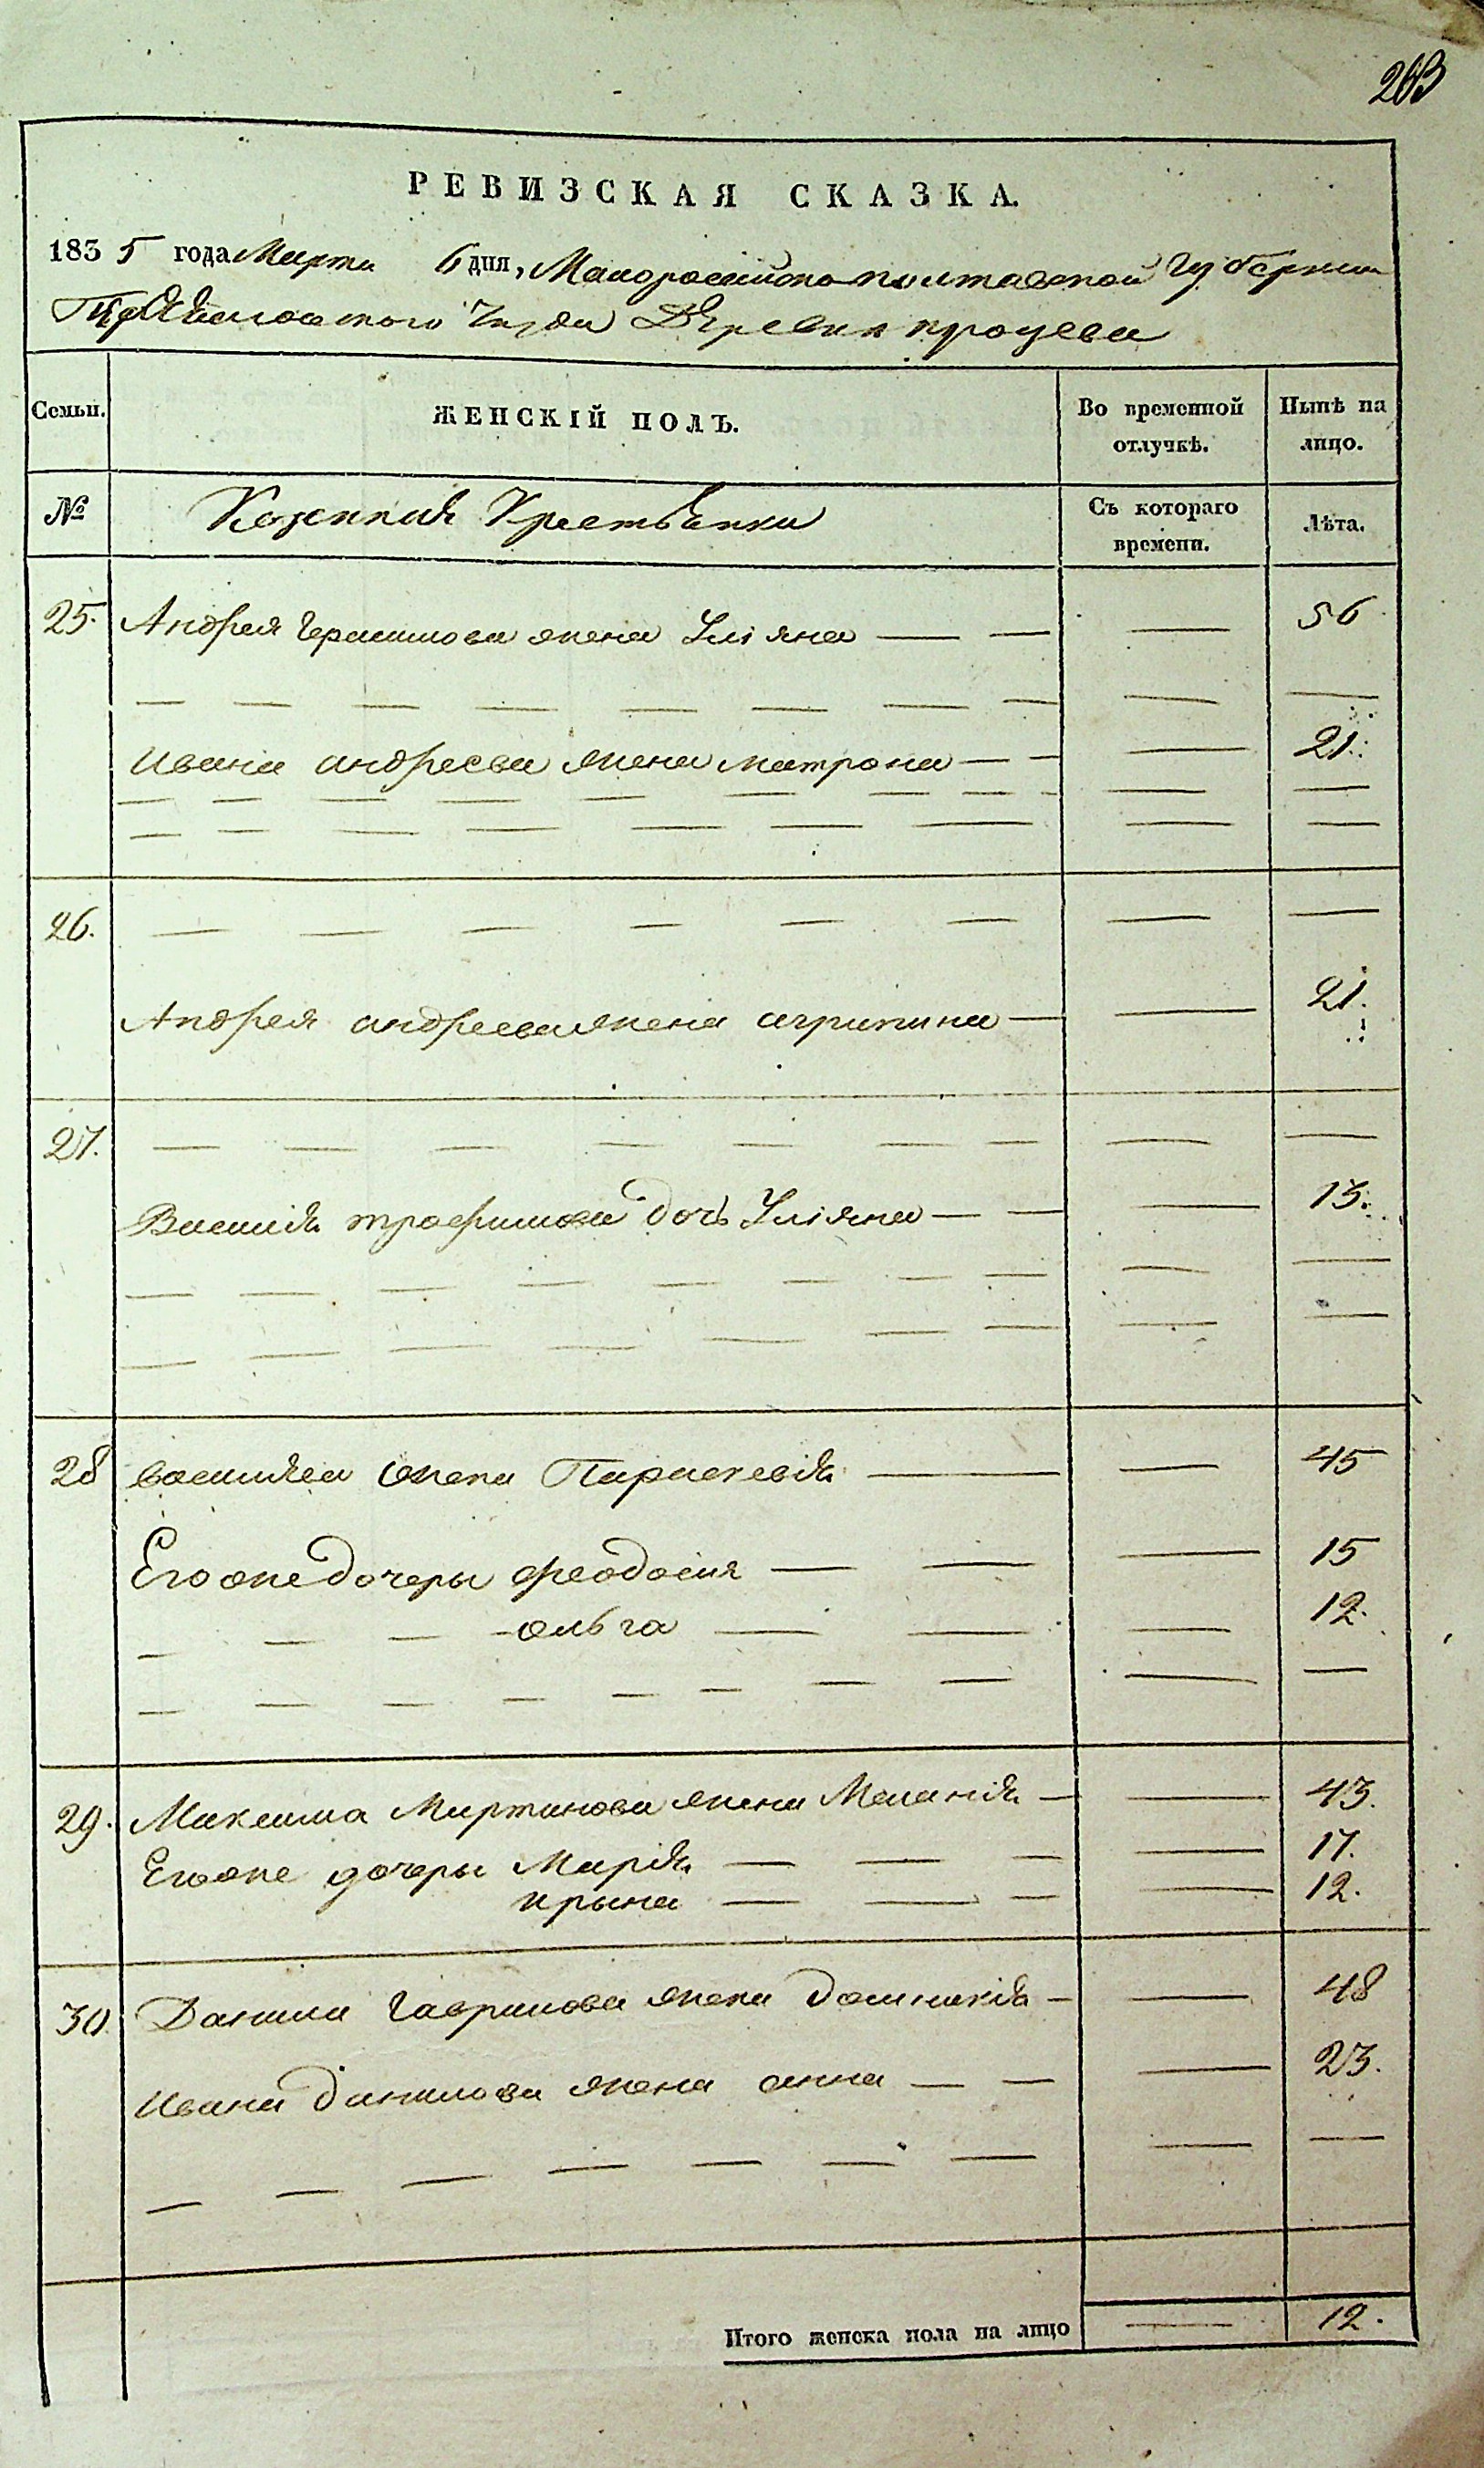 263
РЕВИЗСКАЯ СКАЗКА.
1835 года Марта 6 дня, Малоросийско полтавской Губернии
Уезда Деревни процевки
Семьи. ЖЕНСКІЙ ПОЛЪ. Во временной отлучкѣ. Нынѣ на лицо.
№ Казенния Крестьянки Съ котораго времени. Лѣта.
25. Андрея Герасимова жена Уліяна — — — 56
— — — — — — — — — —
Ивана андреева жена матрона — — — 21.
— — — — — — — — — —
— — — — — — — — —
26. — — — — — — — —
Андрея андреева жена агрипина — — 21.
27. — — — — — — — — —
Василія трофимова дочь Уліяна — — — 15.
— — — — — — — — —
— — — — — — — — —
28 василия жена Параскевія — — 45
Его же дочеры феодосия — — — 15
— — — ольга — — — 12.
— — — — — — — — — —
29. Максима Мартинова жена Меланія — — 43.
Его же дочеры Марія — — — — 17.
ирына — — — — 12.
30. Данила Гаврилова жена домникія — — 48
Ивана данилова жена анна — — — 23.
— — — — — — — — —
Итого женска пола на лицо — 12.